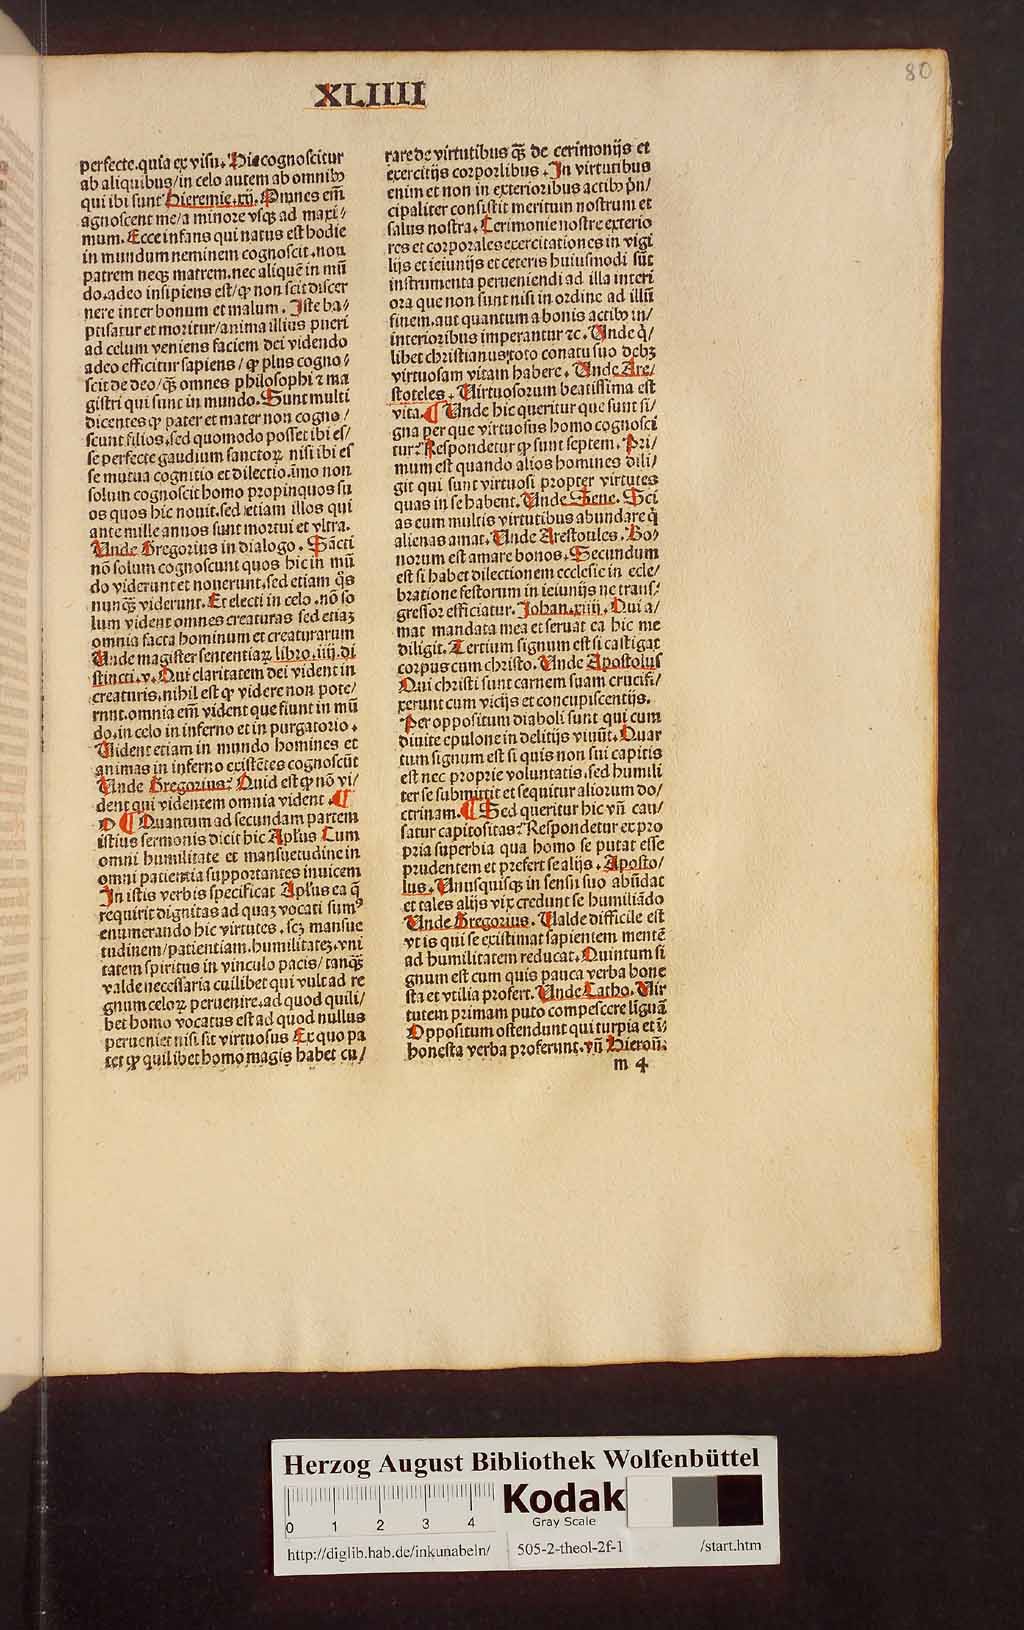 80
XLIIII
perfecte.quia ex visu. Hic cognoscitur
ab aliquibus/in celo autem ab omnibꝰ
qui ibi sunt Hieremie.xxj. Omnes em̃
agnoscent me/a minore vsqꝫ ad maxi/
mum. Ecce infans qui natus est hodie
in mundum neminem cognoscit.non
patrem neqꝫ matrem.nec aliquẽ in mũ
do.adeo insipiens est/ꝙ non scit discer
nere inter bonum et malum. Iste ba/
ptisatur et moritur/anima illius pueri
ad celum veniens faciem dei videndo
adeo efficitur sapiens/ꝙ plus cogno/
scit de deo/q̃ꝫ omnes philosophi ⁊ ma
gistri qui sunt in mundo. Sunt multi
dicentes ꝙ pater et mater non cogno/
scunt filios.sed quomodo posset ibi es/
se perfecte gaudium sanctoꝝ nisi ibi es
se mutua cognitio et dilectio.ĩmo non
solum cognoscit homo propinquos su
os quos hic nouit.sed etiam illos qui
ante mille annos sunt mortui et vltra.
Unde Gregorius in dialogo. Sãcti
nõ solum cognoscunt quos hic in mũ
do viderunt et nouerunt.sed etiam q̃s
nunq̃ꝫ viderunt. Et electi in celo.nõ so
lum vident omnes creaturas sed etiaꝫ
omnia facta hominum et creaturarum
Unde magister sententiaꝝ libro.iiij.di
stincti.v. Qui claritatem dei vident in
creaturis.nihil est ꝙ videre non pote/
runt.omnia em̃ vident que fiunt in mũ
do.in celo in inferno et in purgatorio.
Vident etiam in mundo homines et
animas in inferno existẽtes cognoscũt
Unde Gregorius: Quid est ꝙ nõ vi/
dent qui videntem omnia vident. ¶
D ¶ Quantum ad secundam partem
istius sermonis dicit hic Apl̃us Cum
omni humilitate et mansuetudine in
omni patientia supportantes inuicem
In istis verbis specificat Apl̃us ea q̃
requirit dignitas ad quaꝫ vocati sumꝰ
enumerando hic virtutes.scꝫ mansue
tudinem/patientiam.humilitateꝫ.vni
tatem spiritus in vinculo pacis/tanq̃ꝫ
valde necessaria cuilibet qui vult ad re
gnum celoꝝ peruenire.ad quod quili/
bet homo vocatus est ad quod nullus
perueniet nisi sit virtuosus Ex quo pa
tet ꝙ quilibet homo magis habet cu/
rare de virtutibus q̃ꝫ de cerimonijs et
exercitijs corporlibus. In virtutibus
enim et non in exterioribus actibꝰ p̃n/
cipaliter consistit meritum nostrum et
salus nostra. Cerimonie nostre exterio
res et corporales exercitationes in vigi
lijs et ieiunijs et ceteris huiusmodi sũt
instrumenta perueniendi ad illa interi
ora que non sunt nisi in ordine ad illũ
finem.aut quantum a bonis actibꝰ in/
interioribus imperantur ⁊c. Unde q̃/
libet christianus toto conatu suo debꝫ
virtuosam vitam habere. Unde Are/
stoteles. Virtuosorum beatissima est
vita. ¶ Unde hic queritur que sunt si/
gna per que virtuosus homo cognosci
tur: Respondetur ꝙ sunt septem. Pri/
mum est quando alios homines dili/
git qui sunt virtuosi propter virtutes
quas in se habent. Unde Sene. Sci
as eum multis virtutibus abundare q̃
alienas amat. Unde Arestoules. Bo/
norum est amare bonos. Secundum
est si habet dilectionem ecclesie in cele/
bratione festorum in ieiunijs ne trans/
gressor efficiatur. Johan.xiiij. Qui a/
mat mandata mea et seruat ea hic me
diligit. Tertium signum est si castigat
corpus cum christo. Unde Apostolus
Qui christi sunt carnem suam crucifi/
xerunt cum vicijs et concupiscentijs.
Per oppositum diaboli sunt qui cum
diuite epulone in delitijs viuũt. Quar
tum signum est si quis non sui capitis
est nec proprie voluntatis.sed humili
ter se submittit et sequitur aliorum do/
ctrinam. ¶ Sed queritur hic vñ cau/
satur capitositas: Respondetur ex pro
pria superbia qua homo se putat esse
prudentem et prefert se alijs. Aposto/
lus. Unusquisqꝫ in sensu suo abũdat
et tales alijs vix credunt se humiliãdo
Unde Gregorius. Valde difficile est
vt is qui se existimat sapientem mentẽ
ad humilitatem reducat. Quintum si
gnum est cum quis pauca verba hone
sta et vtilia profert. Unde Catho. Vir
tutem primam puto compescere liguã
Oppositum ostendunt qui turpia et ĩ/
honesta verba proferunt.vñ Hieroñ.
m 4
Herzog August Bibliothek Wolfenbüttel
0 1 2 3 4
Kodak
Gray Scale
http://diglib.hab.de/inkunabeln/ 505-2-theol-2f-1 /start.htm